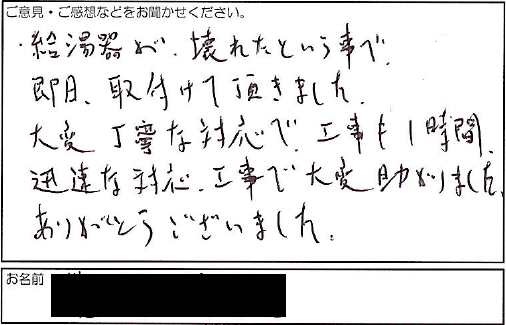 ご意見・ご感想などをお聞かせください。
・給湯器が、壊れたという事で、
即日、取付けて頂きました。
大変丁寧な対応で、工事も1時間、
迅速な対応、工事で大変助かりました。
ありがとうございました。
お名前